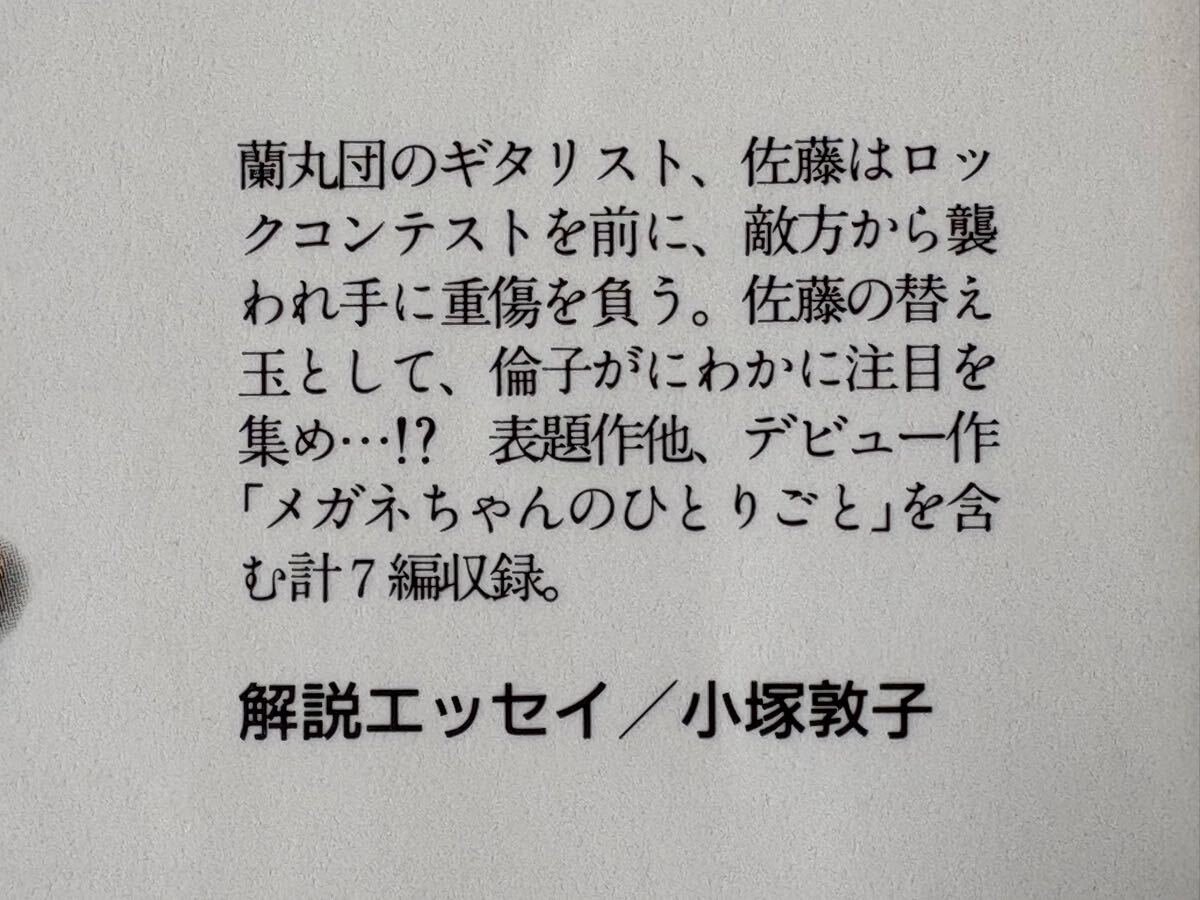 蘭丸団のギタリスト、佐藤はロッ
クコンテストを前に、敵方から襲
われ手に重傷を負う。佐藤の替え
玉として、倫子がにわかに注目を
集め…!?　表題作他、デビュー作
「メガネちゃんのひとりごと」を含
む計7編収録。
解説エッセイ／小塚敦子